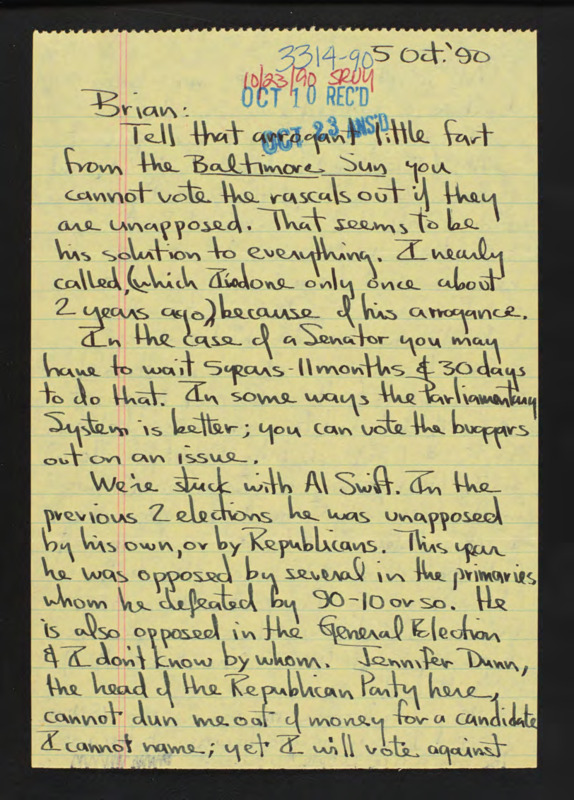 3314-90 5 Oct. '90
10/23/90 SRUY
OCT 10 REC'D
Brian:
OCT 23 ANS'D
Tell that arrogant little fart
from the Baltimore Sun you
cannot vote the rascals out if they
are unapposed. That seems to be
his solution to everything. I nearly
called, (which I've done only once about
2 years ago), because of his arrogance.
In the case of a Senator you may
have to wait 5 years-11 months & 30 days
to do that. In some ways the Parliamentary
System is better; you can vote the buggars
out on an issue.
We're stuck with Al Swift. In the
previous 2 elections he was unapposed
by his own, or by Republicans. This year
he was opposed by several in the primaries
whom he defeated by 90-10 or so. He
is also opposed in the General Election
& I don't know by whom. Jennifer Dunn,
the head of the Republican Party here,
cannot dun me out of money for a candidate
I cannot name; yet I will vote against